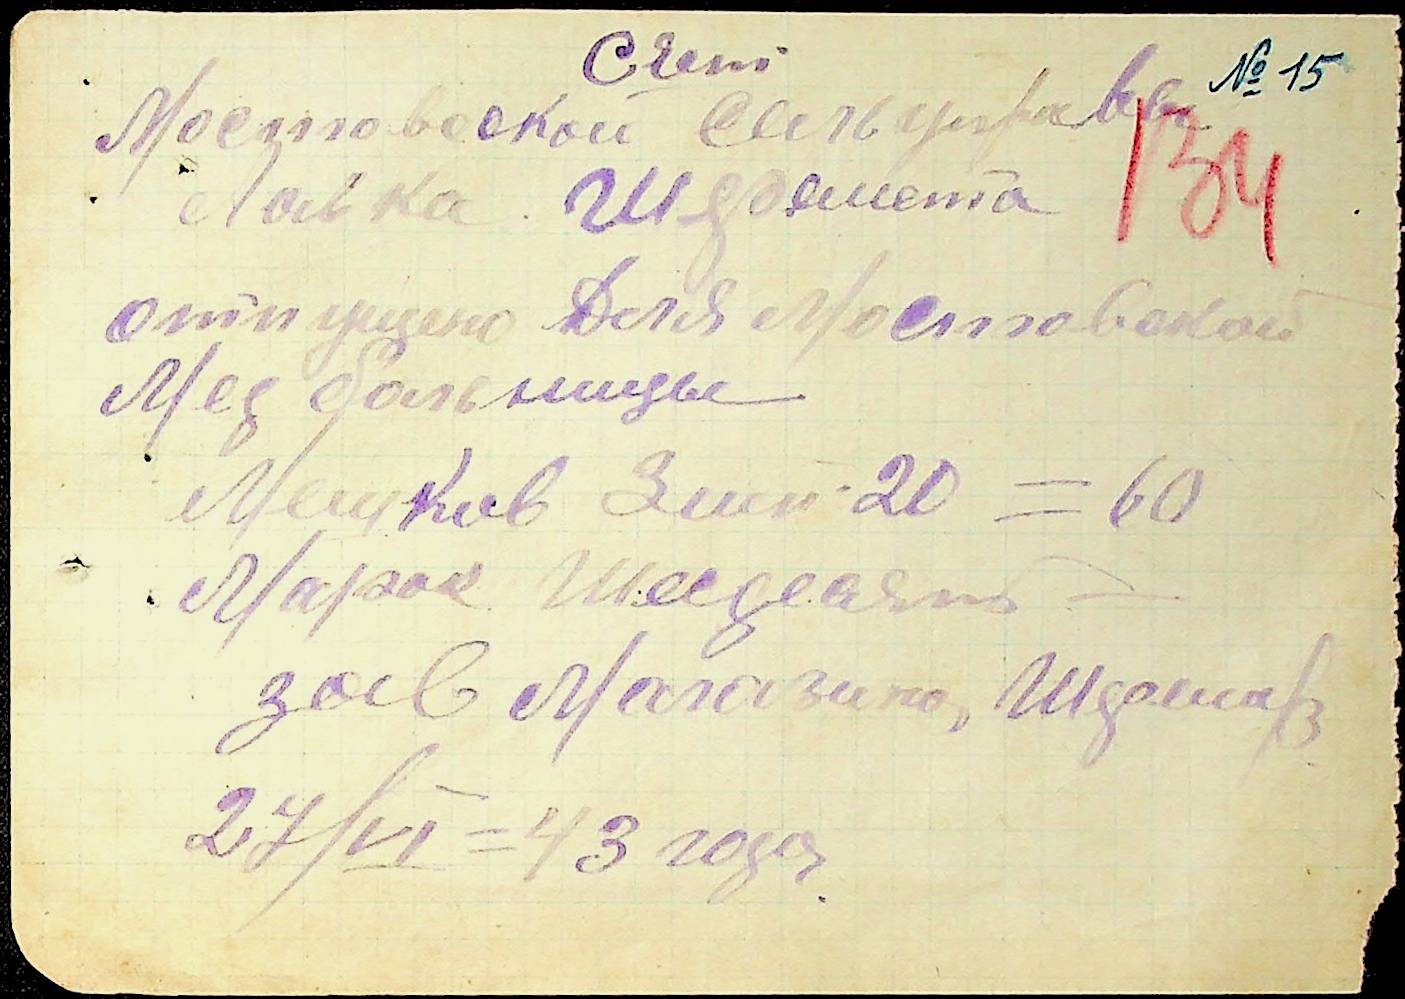 Счет
№ 15
Мостовской Сельуправы
134
Лавка Шдамета
отпущено Для Мостовской
Мед больницы
Мешков 3 шт · 20 = 60
Марок Шесдесят =
зав Магазина,
27/VI = 43 года.